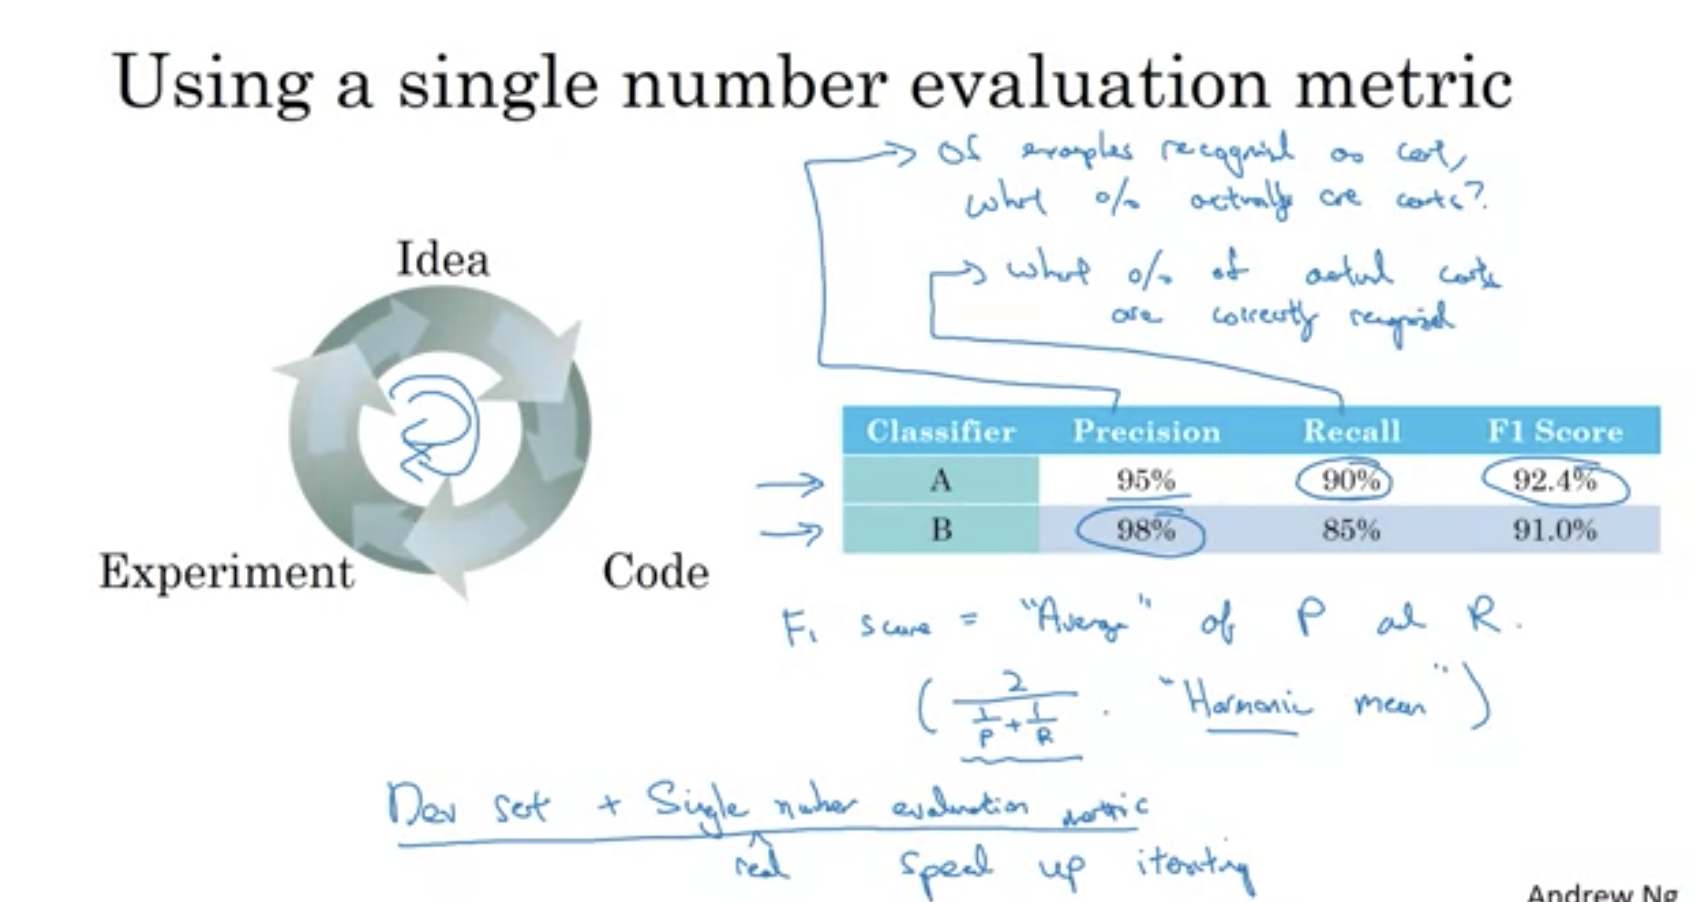 Using a single number evaluation metric
Of examples recognized as cat,
what % actually are cats?
what % of actual cats
are correctly recognized
Idea
Code
Experiment
Classifier Precision Recall F1 Score
A 95% 90% 92.4%
B 98% 85% 91.0%
F1 score = "Average" of P and R.
( 2 / (1/P + 1/R) . "Harmonic mean" )
Dev set + Single number evaluation metric
real speed up iterating
Andrew Ng